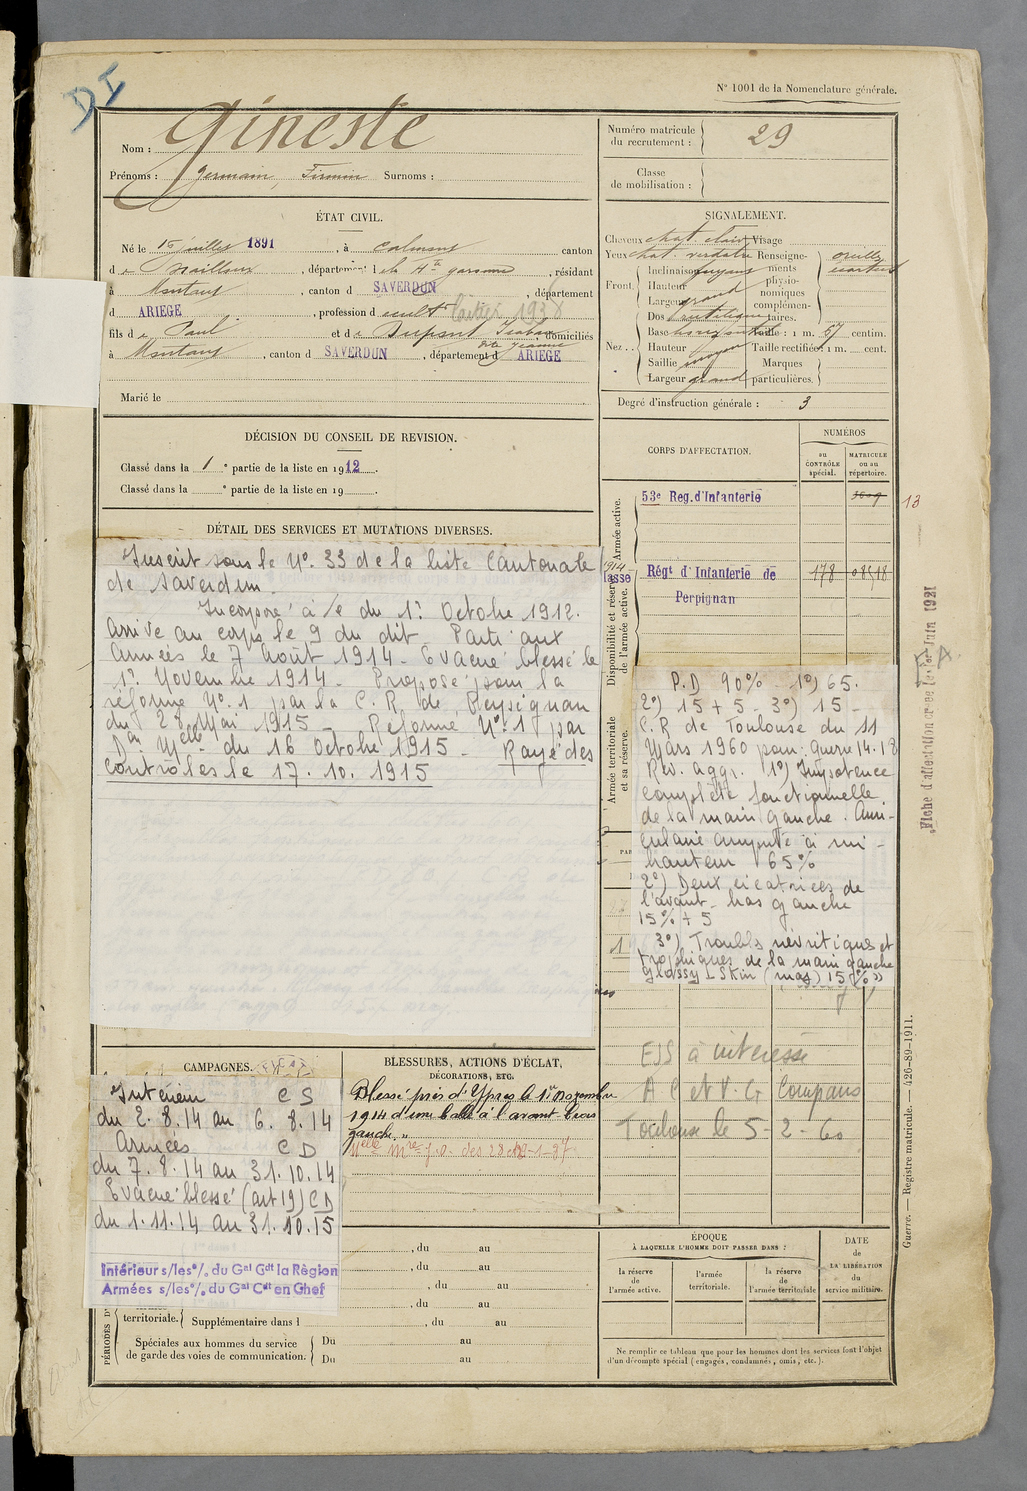 D I
N° 1001 de la Nomenclature générale.
Nom : Gineste
Prénoms : Germain, Firmin Surnoms :
Numéro matricule du recrutement : 29
Classe de mobilisation :
ÉTAT CIVIL.
Né le 15 juillet 1891, à Calmont canton
de Nailloux, département de la Hte garonne, résidant
à Montaut, canton d SAVERDUN, département
d ARIEGE, profession d cult 1938
fils de Paul et de Dupont domiciliés
dite Jeanne
à Montaut, canton d SAVERDUN, département d ARIEGE
Marié le
SIGNALEMENT.
Cheveux chat. clair Visage
Yeux chat. verdatre Renseigne-
Inclinaison fuyant ments
Front. Hauteur physio-
Largeur grand nomiques
complémen-
Dos rectiligne taires.
Base horizontale Taille : 1 m. 57 centim.
Nez .. Hauteur Taille rectifiée : 1 m. cent.
Saillie moyen Marques
Largeur grand particulières.
oreilles
écartées
Degré d'instruction générale : 3
DÉCISION DU CONSEIL DE REVISION.
Classé dans la 1e partie de la liste en 1912.
Classé dans la e partie de la liste en 19 .
CORPS D'AFFECTATION.
NUMÉROS
au CONTRÔLE spécial.
MATRICULE ou au répertoire.
Armée active.
53e Reg. d'Infanterie
13
1914
lasse
Disponibilité et réserve de l'armée active.
Régt d'Infanterie de 178 08518
Perpignan
Armée territoriale et sa réserve.
DÉTAIL DES SERVICES ET MUTATIONS DIVERSES.
Inscrit sous le N°. 33 de la liste Cantonale
de Saverdun.
Incorporé à /c du 1°. Octobre 1912.
Arrivé au corps le 9 du dit - Parti aux
Armées le 7 Août 1914 - Evacué blessé le
1°. Novembre 1914 - Proposé pour la
réforme N°. 1 par la C.R. de Perpignan
du 28 Mai 1915 - Réformé N°. 1 par
Don Melle du 16 Octobre 1915 - Rayé des
contrôles le 17.10.1915
P.D 90% - 1°) 65.
2°) 15 + 5 - 3°) 15 -
C.R de Toulouse du 11
Mars 1960 pour : Guerre 14-18
Rev. aggr. 1°) Impotence
complète fonctionnelle
de la main gauche. Auri-
culaire amputé à mi-
hauteur 65%
2°) Deux cicatrices de
l'avant-bras gauche
15% + 5
3°) Troubles névritiques et
trophiques de la main gauche
Glossy Skin (mas) 15% »
EJS à intéressé
A C et V. G Compans
Toulouse le 5-2-60
Fiche d'affectation créée le 1er Juin 1921
CAMPAGNES.
Intérieur C S
du 2.8.14 au 6.8.14
Armées C D
du 7.8.14 au 31.10.14
Evacué blessé (art 19) CD
du 1.11.14 au 31.10.15
Intérieur s/les o/. du Gal Cdt la Région
Armées s/les o/. du Gal Cdt en Chef
BLESSURES, ACTIONS D'ÉCLAT,
DÉCORATIONS, ETC.
Blessé près d'Ypres le 1er Novembre
1914 d'une balle à l'avant bras
gauche. »
, du au
, du au
, du au
, du au
territoriale. Supplémentaire dans l , du au
PÉRIODES D
Spéciales aux hommes du service Du au
de garde des voies de communication. Du au
ÉPOQUE
À LAQUELLE L'HOMME DOIT PASSER DANS :
la réserve de l'armée active.
l'armée territoriale.
la réserve de l'armée territoriale
DATE de LA LIBÉRATION du service militaire.
Ne remplir ce tableau que pour les hommes dont les services font l'objet
d'un décompte spécial (engagés, condamnés, omis, etc.).
Guerre. — Registre matricule. — 426-89-1911.